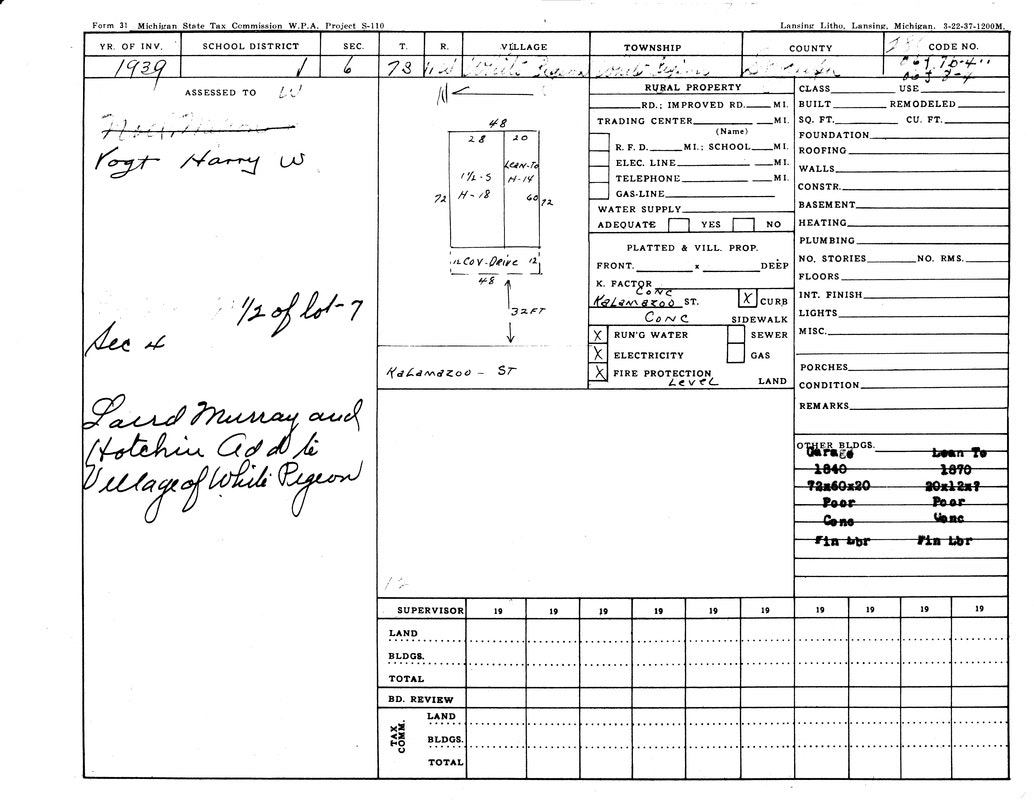 Form 31 Michigan State Tax Commission W.P.A. Project S-110
Lansing Litho, Lansing, Michigan. 3-22-37-1200M.
YR. OF INV. SCHOOL DISTRICT SEC. T. R. VILLAGE TOWNSHIP COUNTY CODE NO.
1939 1 6 7S White Pigeon White Pigeon
ASSESSED TO W
Vogt Harry W
1/2 of lot-7
Sec 4
Laird Murray and
Hotchin Add to
Village of White Pigeon
N
48
28 20
1 1/2-S Lean-To
H-18 H-14
72 60 72
12 Cov-Drive 12
48
32FT
Kalamazoo - ST
RURAL PROPERTY
RD.; IMPROVED RD. MI.
TRADING CENTER MI.
(Name)
R. F. D. MI.; SCHOOL MI.
ELEC. LINE MI.
TELEPHONE MI.
GAS-LINE
WATER SUPPLY
ADEQUATE YES NO
PLATTED & VILL. PROP.
FRONT. x DEEP
K. FACTOR
Conc
Kalamazoo ST. X CURB
Conc SIDEWALK
X RUN'G WATER SEWER
X ELECTRICITY GAS
X FIRE PROTECTION
Level LAND
CLASS USE
BUILT REMODELED
SQ. FT. CU. FT.
FOUNDATION
ROOFING
WALLS
CONSTR.
BASEMENT
HEATING
PLUMBING
NO. STORIES NO. RMS.
FLOORS
INT. FINISH
LIGHTS
MISC.
PORCHES
CONDITION
REMARKS
OTHER BLDGS.
Garage Lean To
1840 1870
72x60x20 20x12x?
Poor Poor
Conc Conc
Fin Lbr Fin Lbr
SUPERVISOR 19 19 19 19 19 19 19 19 19 19
LAND
BLDGS.
TOTAL
BD. REVIEW
TAX COMM.
LAND
BLDGS.
TOTAL